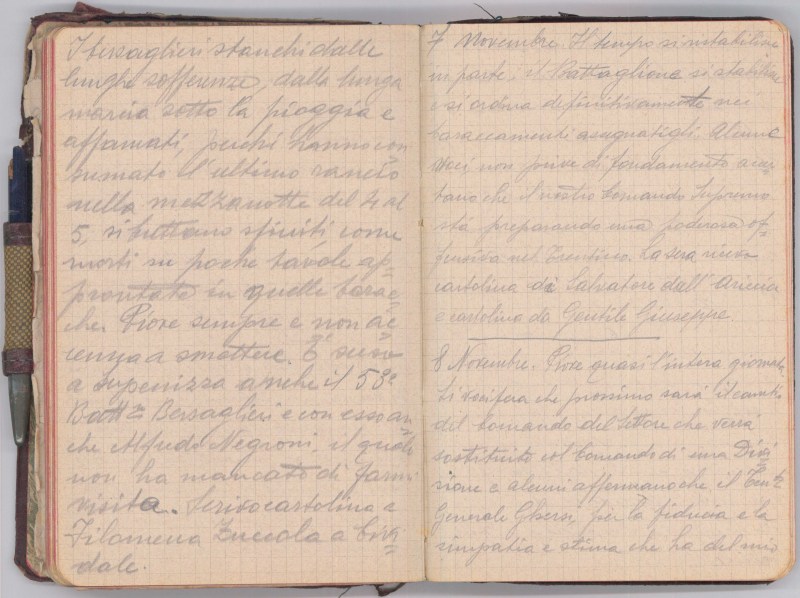 I bersaglieri stanchi dalle
lunghe sofferenze, dalla lunga
marcia sotto la pioggia e
affamati, perchè hanno con
sumato l'ultimo rancio
nella mezzanotte del 4 al
5, si buttano sfiniti come
morti su poche tavole ap-
prontate in quelle barac-
che. Piove sempre e non ac
cenna a smettere. È
a Supenizza anche il 58°
Battne Bersaglieri e con esso an
che Alfredo Negroni, il quale
non ha mancato di farmi
visita. Scrivo cartolina a
Filomena Zuccola a Civi
dale.
7 Novembre. Il tempo si ristabilisce
in parte, il Battaglione si stabilisce
e si ordina definitivamente nei
baraccamenti assegnatigli. Alcune
voci non prive di fondamento accer
tano che il nostro Comando Supremo
stà preparando una poderosa of-
fensiva nel Trentino. La sera ricevo
cartolina di Salvatore dall'Ariccia
e cartolina da Gentile Giuseppe.
8 Novembre. Piove quasi l'intera giornata.
Si vocifera che prossimo sarà il cambio
del Comando del Settore che verrà
sostituito col Comando di una Divi
sione e alcuni affermano che il Tente
Generale Ghersi per la fiducia e la
simpatia e stima che ha del mio